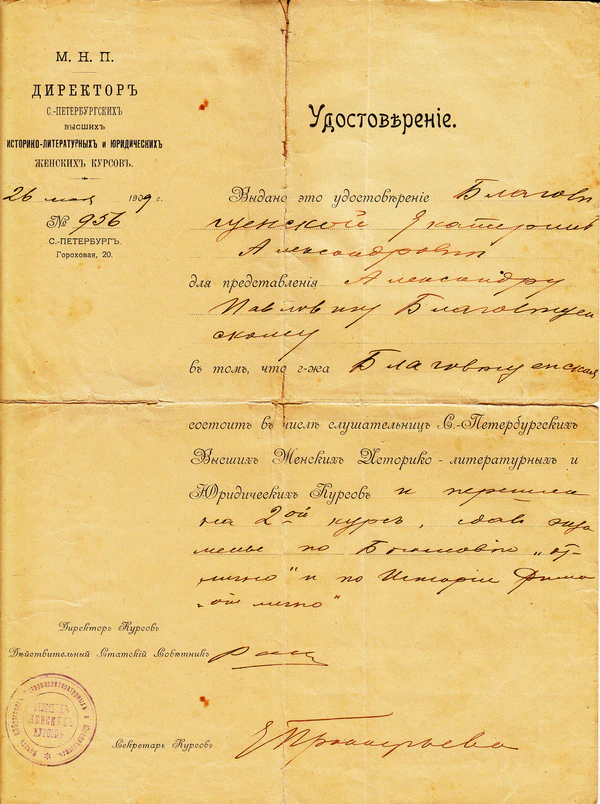 М. Н. П.
ДИРЕКТОРЪ
С.-ПЕТЕРБУРГСКИХЪ
ВЫСШИХЪ
ИСТОРИКО-ЛИТЕРАТУРНЫХЪ и ЮРИДИЧЕСКИХЪ
ЖЕНСКИХЪ КУРСОВЪ.
26 мая 1909 г.
№ 956
С.-ПЕТЕРБУРГЪ.
Гороховая, 20.
Удостовѣреніе.
Выдано это удостовѣреніе Благовѣ
щенской Екатеринѣ
Александровнѣ
для представленія Александру
Павловичу Благовѣщен
скому
въ томъ, что г-жа Благовѣщенская
состоитъ въ числѣ слушательницъ С.-Петербургскихъ
Высшихъ Женскихъ Историко-литературныхъ и
Юридическихъ Курсовъ и перешла
на 2ой курсъ, сдав экза
мены по Богословію „от
лично" и по Исторіи Рима
„отлично"
Директоръ Курсовъ
Дѣйствительный Статскій Совѣтникъ
Секретарь Курсовъ
ВЫСШИХЪ
ЖЕНСКИХЪ
КУРСОВЪ